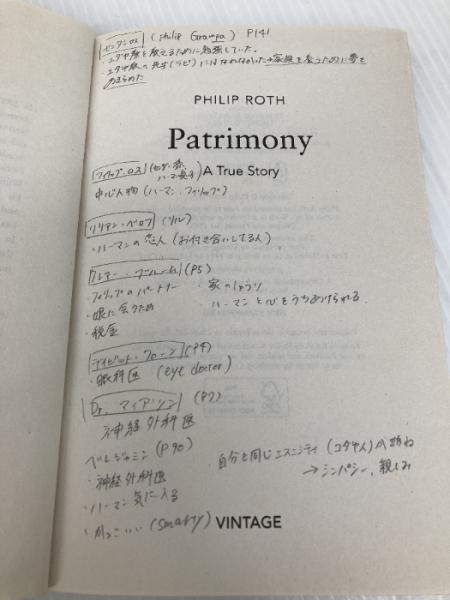 センダー・ロス (Philip Grampa) P141
・ユダヤ教を教えるために勉強していた。
・ユダヤ教の先生(ラビ)にはなれなかった→家族を養うために夢を
あきらめた
PHILIP ROTH
Patrimony
A True Story
フィリップ・ロス
中心人物 (ハーマン、フィリップ)
リリアン・ベロフ (リル)
・ハーマンの恋人 (お付き合いしてる人)
クレアー・ブルーム (P5)
・フィリップのパートナー ・家の
・娘に会うため ・ハーマンと心をうちあけられる.
・税金
デイビット・クローン (P9)
・眼科医 (eye doctor)
Dr. マイアソン (P7)
神経外科医
ベンジャミン (P90) ・自分と同じエスニシティ (ユダヤ人)
・神経外科医 → シンパシー、親しみ
・ハーマン気に入る
・かっこいい (smarty)
VINTAGE